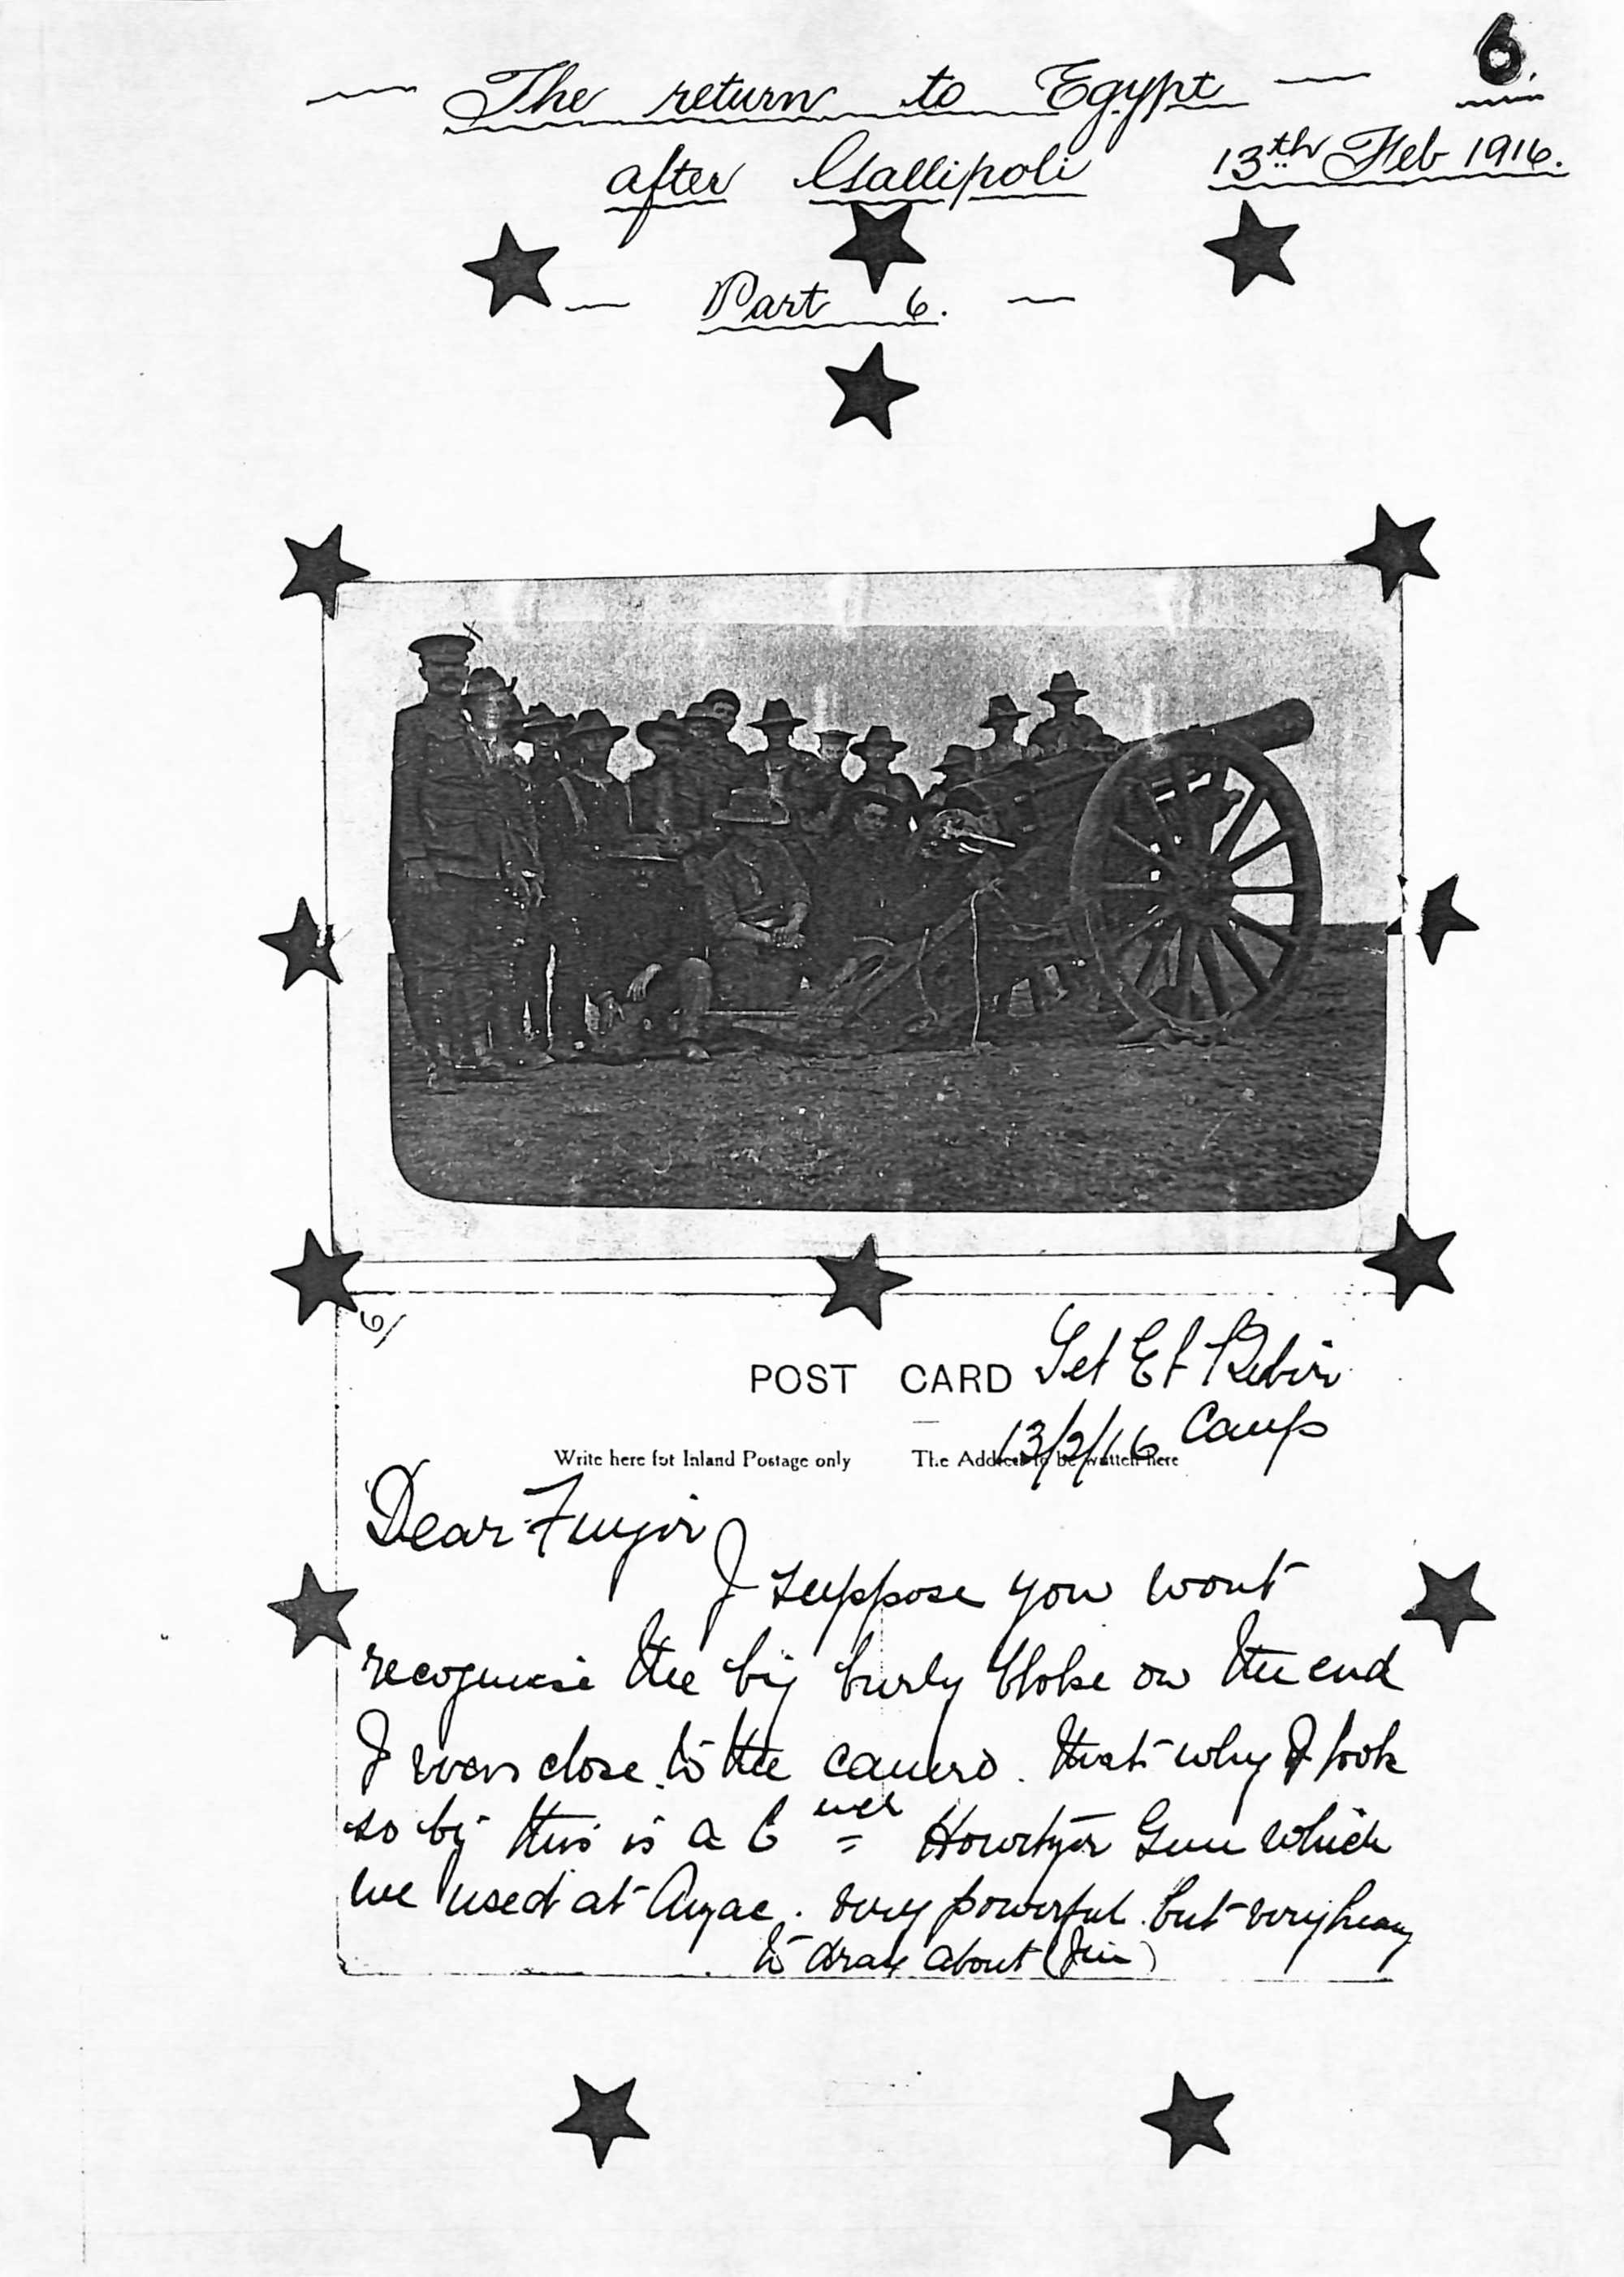 The return to Egypt
6.
after Gallipoli 13th Feb 1916.
Part 6.
6/
POST CARD Tel El Kebir
13/2/16 Camp
Write here for Inland Postage only The Address to be written here
Dear
I suppose you wont
recognise the big burly bloke on the end
I was close to the camera. thats why I look
so big this is a 6 inch Howitzer Gun which
we used at Anzac. very powerful but very heavy
to drag about (Jim)